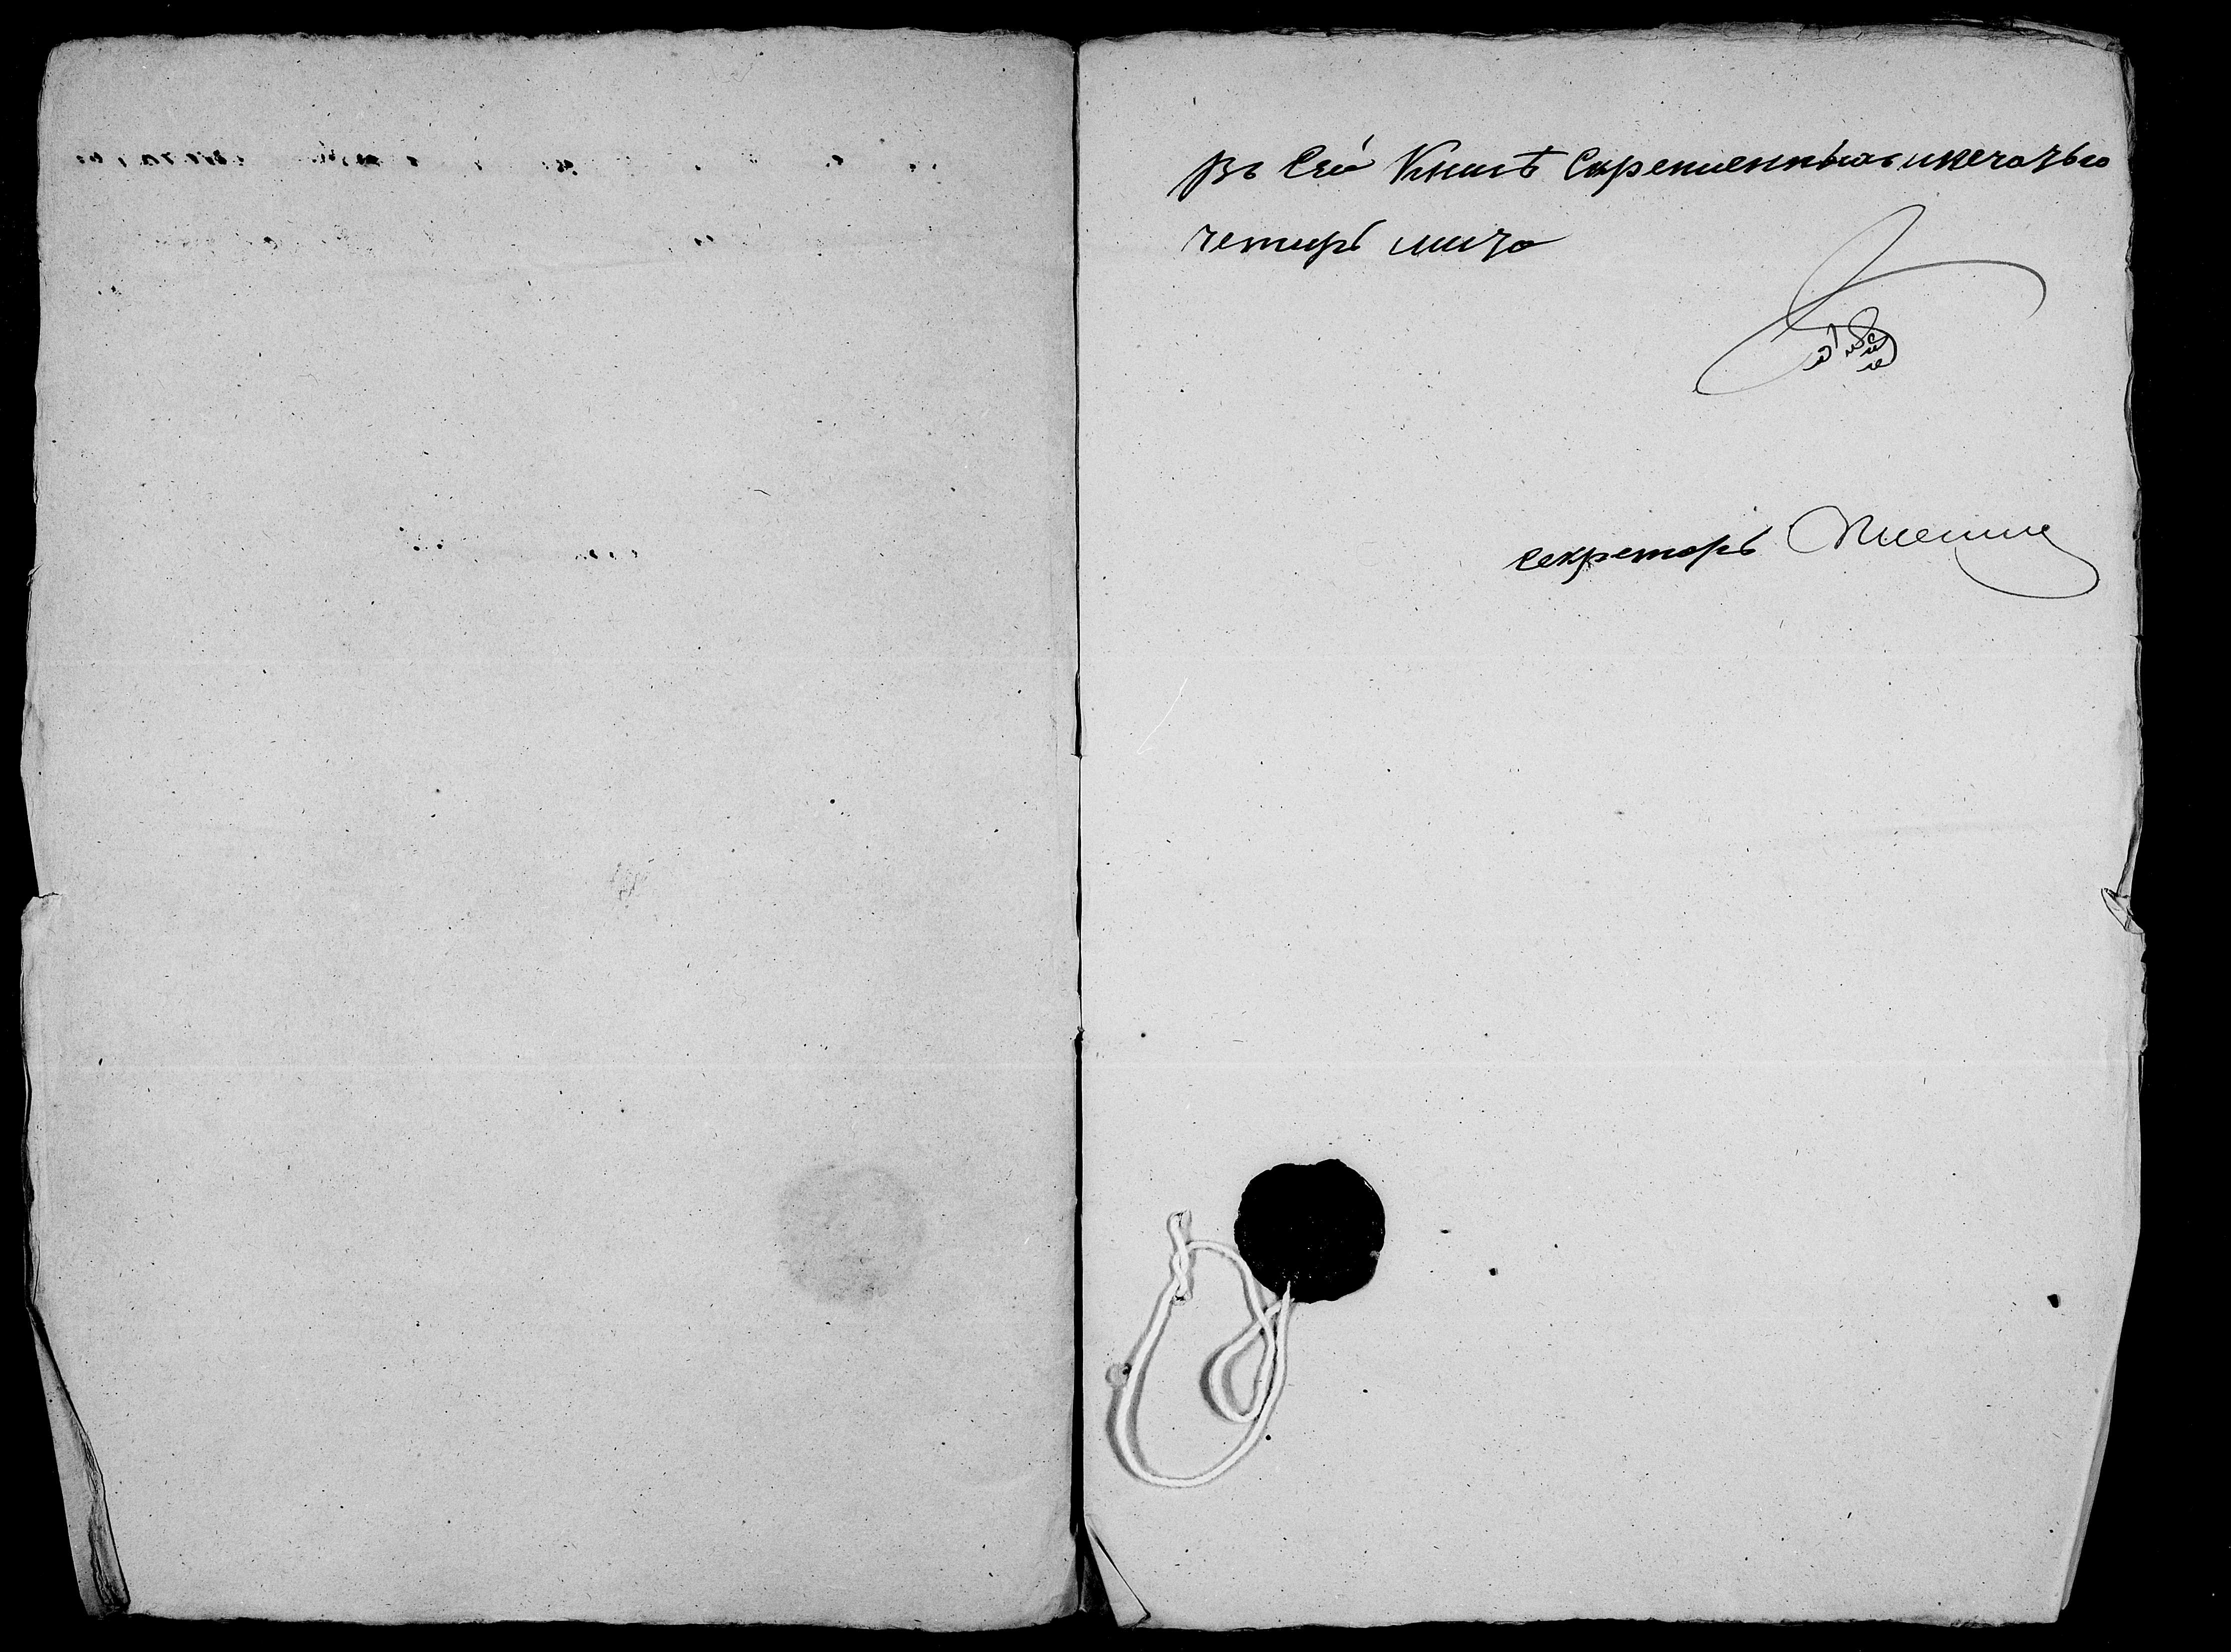 Въ Сей Книгѣ Скрепленныхъ и печатью
четыръ листа
секретарь